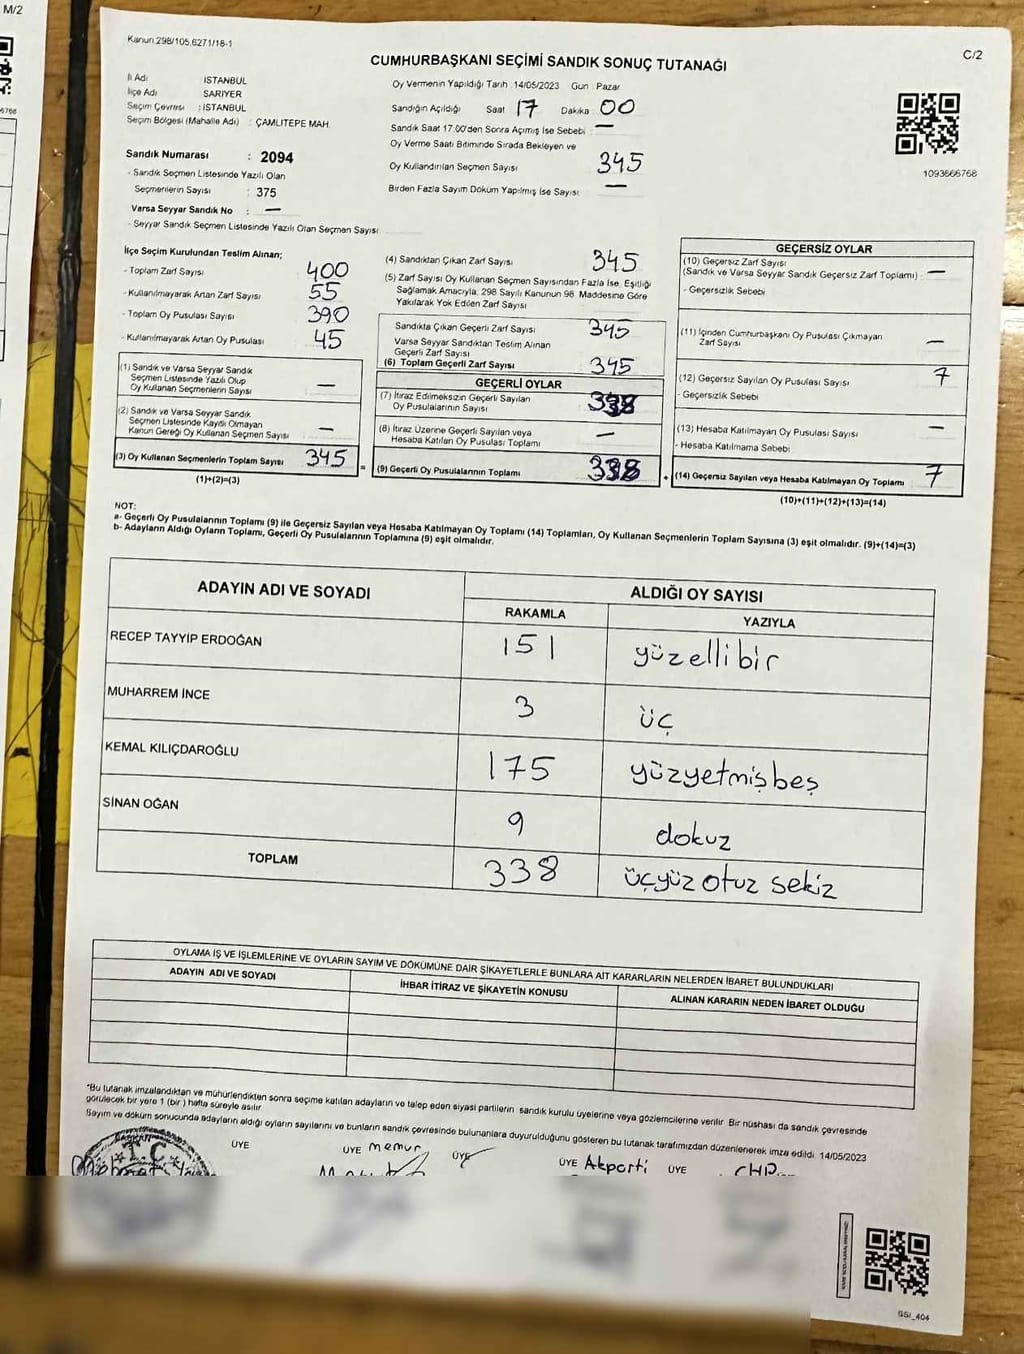 M/2
Kanun 298/105,6271/18-1
CUMHURBAŞKANI SEÇİMİ SANDIK SONUÇ TUTANAĞI
C/2
İl Adı : İSTANBUL
İlçe Adı SARIYER
Seçim Çevresi : İSTANBUL
Seçim Bölgesi (Mahalle Adı) : ÇAMLITEPE MAH.
Oy Vermenin Yapıldığı Tarih : 14/05/2023 Gün : Pazar
Sandığın Açıldığı Saat 17 Dakika 00
Sandık Saat 17.00'den Sonra Açılmış İse Sebebi : —
Oy Verme Saati Bitiminde Sırada Bekleyen ve
Oy Kullandırılan Seçmen Sayısı 345
Birden Fazla Sayım Döküm Yapılmış İse Sayısı —
1093666768
Sandık Numarası : 2094
- Sandık Seçmen Listesinde Yazılı Olan
Seçmenlerin Sayısı : 375
Varsa Seyyar Sandık No : —
- Seyyar Sandık Seçmen Listesinde Yazılı Olan Seçmen Sayısı
İlçe Seçim Kurulundan Teslim Alınan;
- Toplam Zarf Sayısı 400
- Kullanılmayarak Artan Zarf Sayısı 55
- Toplam Oy Pusulası Sayısı 390
- Kullanılmayarak Artan Oy Pusulası 45
(1) Sandık ve Varsa Seyyar Sandık
Seçmen Listesinde Yazılı Olup
Oy Kullanan Seçmenlerin Sayısı —
(2) Sandık ve Varsa Seyyar Sandık
Seçmen Listesinde Kayıtlı Olmayan
Kanun Gereği Oy Kullanan Seçmen Sayısı —
(3) Oy Kullanan Seçmenlerin Toplam Sayısı 345
(1)+(2)=(3)
(4) Sandıktan Çıkan Zarf Sayısı 345
(5) Zarf Sayısı Oy Kullanan Seçmen Sayısından Fazla İse, Eşitliği
Sağlamak Amacıyla, 298 Sayılı Kanunun 98. Maddesine Göre
Yakılarak Yok Edilen Zarf Sayısı
Sandıkta Çıkan Geçerli Zarf Sayısı 345
Varsa Seyyar Sandıktan Teslim Alınan
Geçerli Zarf Sayısı
(6) Toplam Geçerli Zarf Sayısı 345
GEÇERLİ OYLAR
(7) İtiraz Edilmeksizin Geçerli Sayılan
Oy Pusulalarının Sayısı 338
(8) İtiraz Üzerine Geçerli Sayılan veya
Hesaba Katılan Oy Pusulası Toplamı —
= (9) Geçerli Oy Pusulalarının Toplamı 338
GEÇERSİZ OYLAR
(10) Geçersiz Zarf Sayısı
(Sandık ve Varsa Seyyar Sandık Geçersiz Zarf Toplamı) —
- Geçersizlik Sebebi
(11) İçinden Cumhurbaşkanı Oy Pusulası Çıkmayan
Zarf Sayısı —
(12) Geçersiz Sayılan Oy Pusulası Sayısı 7
- Geçersizlik Sebebi
(13) Hesaba Katılmayan Oy Pusulası Sayısı —
- Hesaba Katılmama Sebebi
+ (14) Geçersiz Sayılan veya Hesaba Katılmayan Oy Toplamı 7
(10)+(11)+(12)+(13)=(14)
NOT:
a- Geçerli Oy Pusulalarının Toplamı (9) ile Geçersiz Sayılan veya Hesaba Katılmayan Oy Toplamı (14) Toplamları, Oy Kullanan Seçmenlerin Toplam Sayısına (3) eşit olmalıdır. (9)+(14)=(3)
b- Adayların Aldığı Oyların Toplamı, Geçerli Oy Pusulalarının Toplamına (9) eşit olmalıdır.
ADAYIN ADI VE SOYADI ALDIĞI OY SAYISI
RAKAMLA YAZIYLA
RECEP TAYYİP ERDOĞAN 151 yüzellibir
MUHARREM İNCE 3 üç
KEMAL KILIÇDAROĞLU 175 yüzyetmişbeş
SİNAN OĞAN 9 dokuz
TOPLAM 338 üçyüz otuz sekiz
OYLAMA İŞ VE İŞLEMLERİNE VE OYLARIN SAYIM VE DÖKÜMÜNE DAİR ŞİKAYETLERLE BUNLARA AİT KARARLARIN NELERDEN İBARET BULUNDUKLARI
ADAYIN ADI VE SOYADI İHBAR İTİRAZ VE ŞİKAYETİN KONUSU ALINAN KARARIN NEDEN İBARET OLDUĞU
"Bu tutanak imzalandıktan ve mühürlendikten sonra seçime katılan adayların ve talep eden siyasi partilerin sandık kurulu üyelerine veya gözlemcilerine verilir. Bir nüshası da sandık çevresinde
görülecek bir yere 1 (bir) hafta süreyle asılır.
Sayım ve döküm sonucunda adayların aldığı oyların sayılarını ve bunların sandık çevresinde bulunanlara duyurulduğunu gösteren bu tutanak tarafımızdan düzenlenerek imza edildi. 14/05/2023
T.C. ÜYE ÜYE memur ÜYE ÜYE Akparti ÜYE CHP
GSI_404